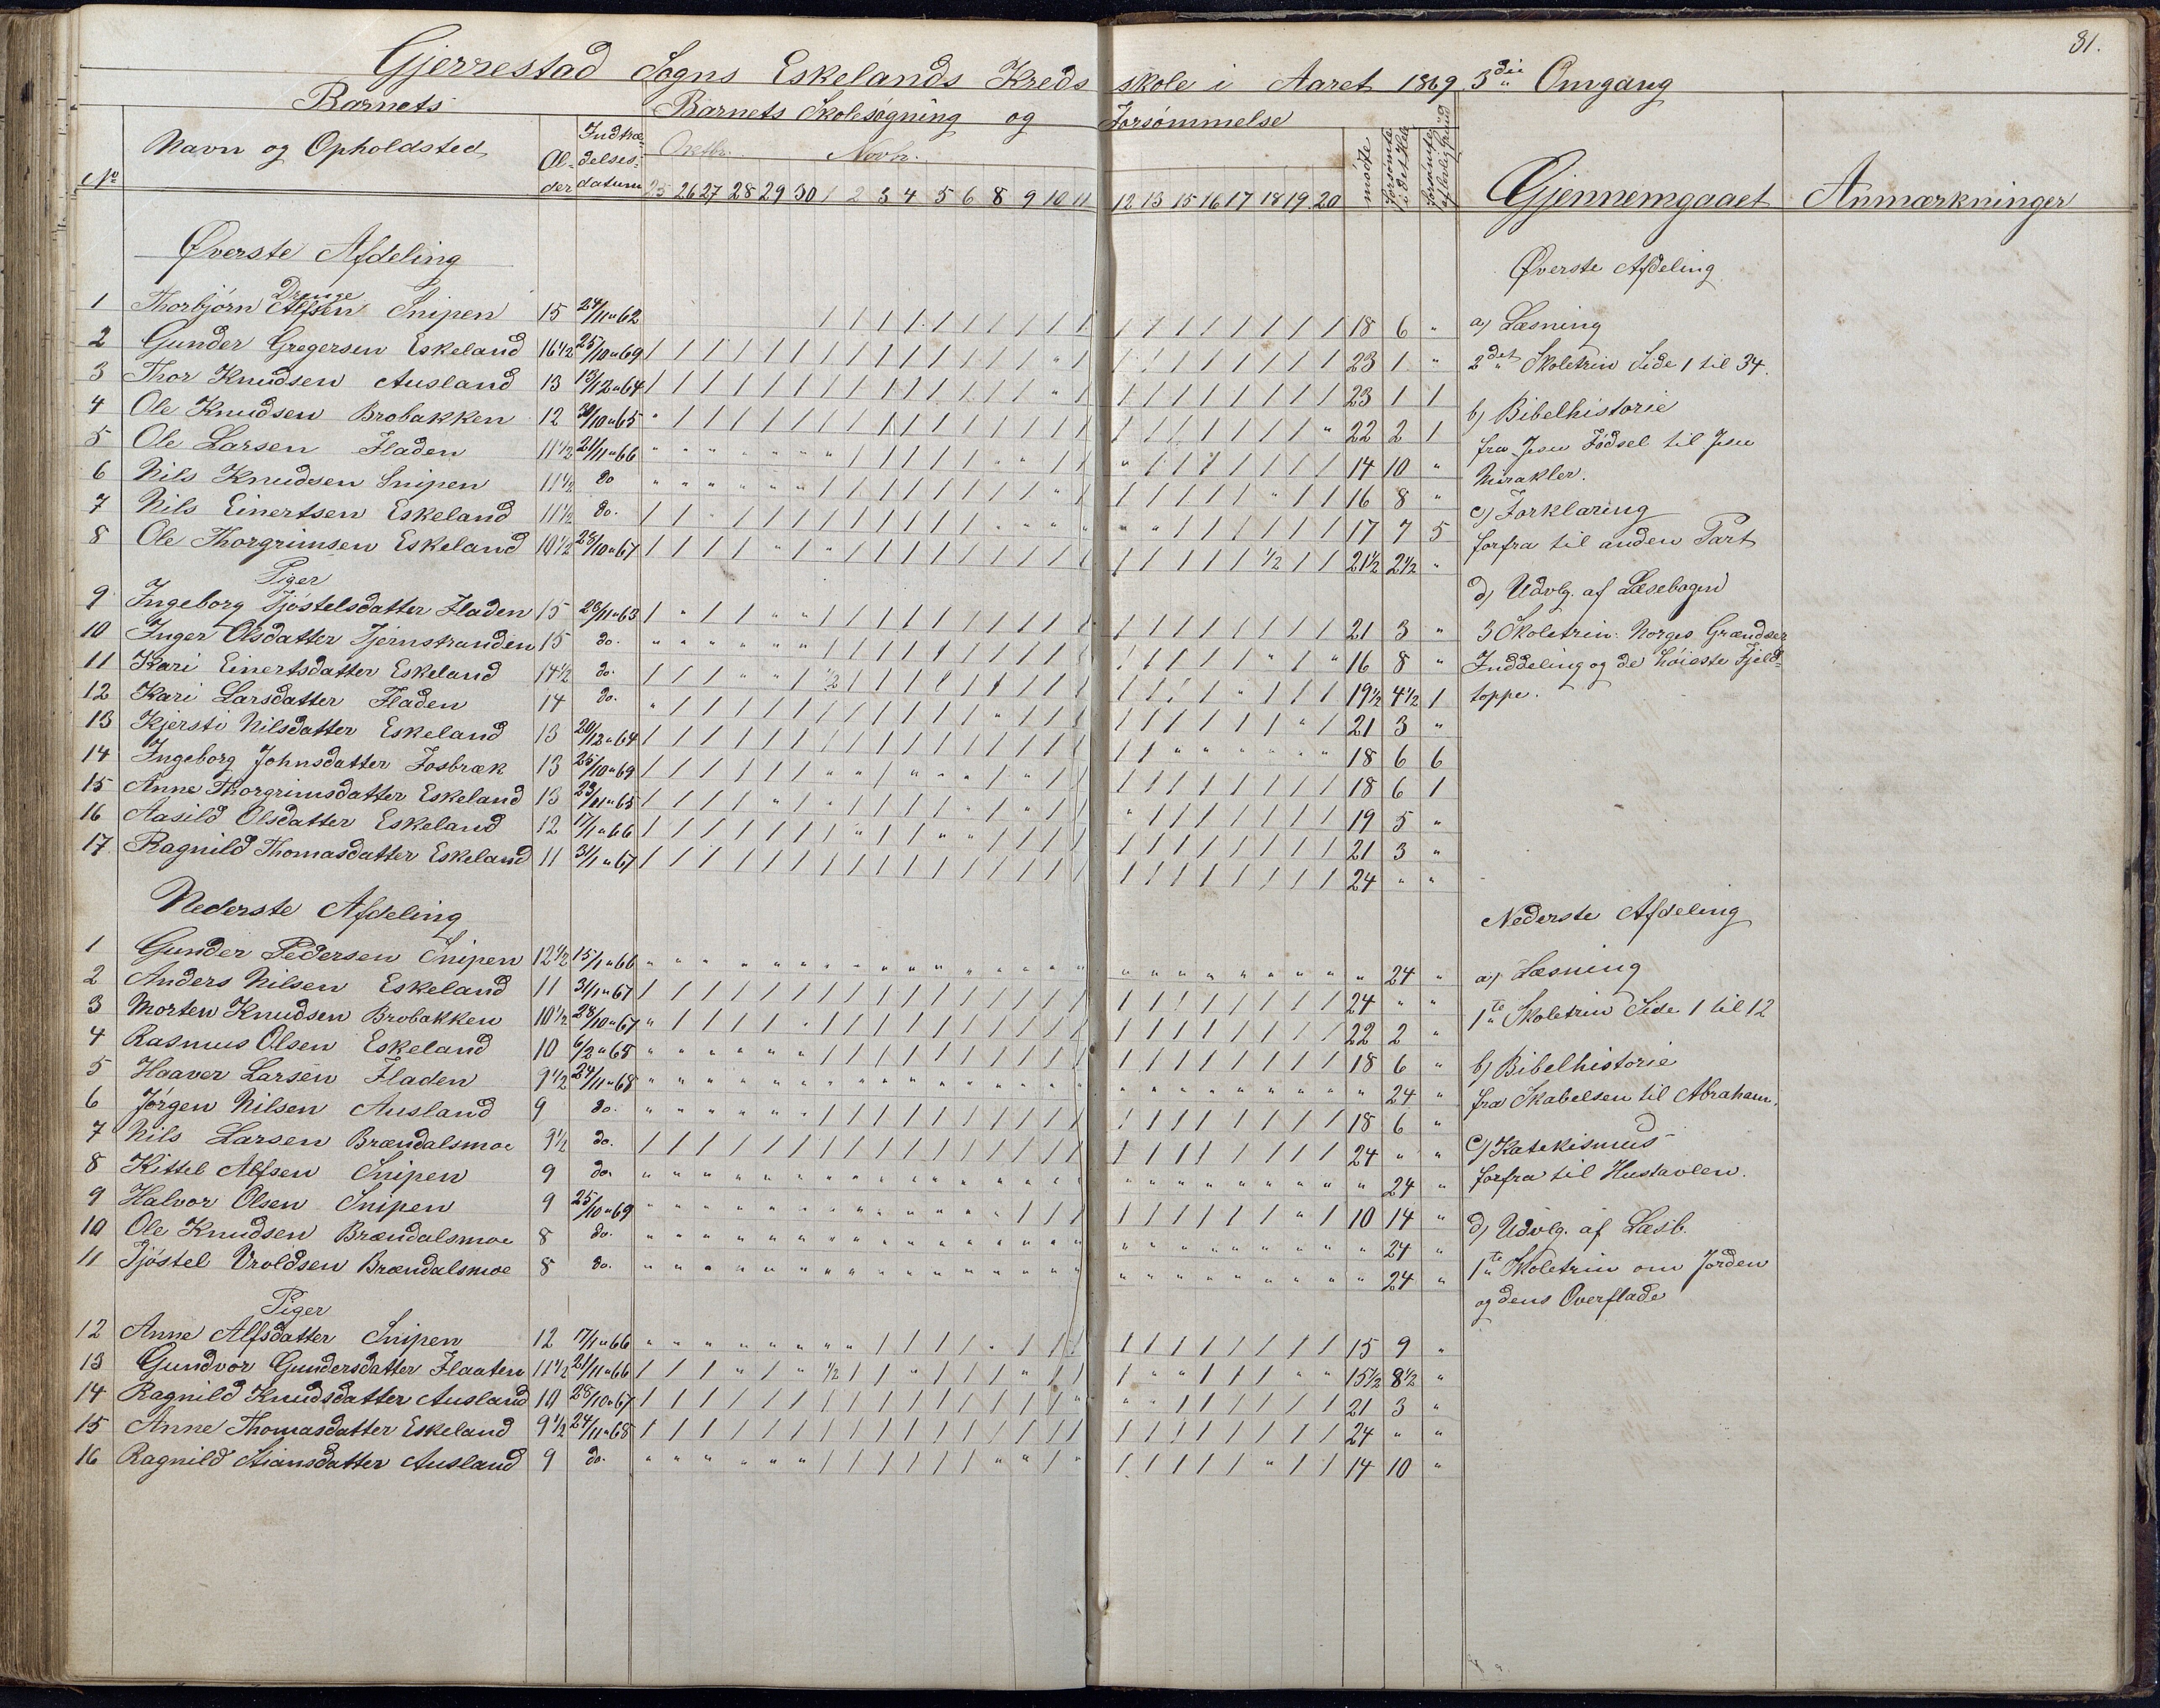 81.
Gjerrestad Sogns Eskelands Kreds skole i Aaret 1869. 3die Omgang
Barnets Barnets Skolesøgning og Forsømmelse
No Navn og Opholdsted Al-der Indtræ-delses-datum Octbr. Novbr. mødte forsømte i det Hele forsømte af lovlig Grund Gjennemgaaet Anmærkninger
25 26 27 28 29 30 1 2 3 4 5 6 8 9 10 11 12 13 15 16 17 18 19 20
Øverste Afdeling
Drenge
1 Thorbjørn Alfsen Snipen 15 24/11 " 62 18 6 "
2 Gunder Gregersen Eskeland 16 1/2 25/10 " 69 23 1 "
3 Thor Knudsen Ausland 13 13/12 " 64 23 1 1
4 Ole Knudsen Brobakken 12 30/10 " 65 22 2 1
5 Ole Larsen Fladen 11 1/2 21/11 " 66 14 10 "
6 Nils Knudsen Snipen 11 1/2 do 16 8 "
7 Nils Einertsen Eskeland 11 1/2 do. 17 7 5
8 Ole Thorgrimsen Eskeland 10 1/2 28/10 " 67 21 1/2 2 1/2 "
Piger
9 Ingeborg Tjøstelsdatter Fladen 15 23/11 " 63 21 3 "
10 Inger Olsdatter Tjernstranden 15 do. 16 8 "
11 Kari Einertsdatter Eskeland 14 1/2 do. 19 1/2 4 1/2 1
12 Kari Larsdatter Fladen 14 do. 21 3 "
13 Kjersti Nilsdatter Eskeland 13 20/12 " 64 18 6 6
14 Ingeborg Johnsdatter Fosbræk 13 25/10 " 69 18 6 1
15 Anne Thorgrimsdatter Eskeland 13 23/11 " 65 19 5 "
16 Aasild Olsdatter Eskeland 12 17/1 " 66 21 3 "
17 Ragnild Thomasdatter Eskeland 11 31/1 " 67 24 " "
Nederste Afdeling
1 Gunder Pedersen Snipen 12 1/2 15/1 " 66 " 24 "
2 Anders Nilsen Eskeland 11 31/1 " 67 24 " "
3 Morten Knudsen Brobakken 10 1/2 28/10 " 67 22 2 "
4 Rasmus Olsen Eskeland 10 6/2 " 68 18 6 "
5 Haaver Larsen Fladen 9 1/2 24/11 " 68 " 24 "
6 Jørgen Nilsen Ausland 9 do. 18 6 "
7 Nils Larsen Brændalsmoe 9 1/2 do. 24 " "
8 Kittel Alfsen Snipen 9 do. " 24 "
9 Halvor Olsen Snipen 9 25/10 " 69 10 14 "
10 Ole Knudsen Brændalsmoe 8 do. " 24 "
11 Tjøstel Vroldsen Brændalsmoe 8 do. " 24 "
Piger
12 Anne Alfsdatter Snipen 12 17/1 " 66 15 9 "
13 Gundvor Gundersdatter Flaaten 11 1/2 21/11 " 66 15 1/2 8 1/2 "
14 Ragnild Knudsdatter Ausland 10 28/10 " 67 21 3 "
15 Anne Thomasdatter Eskeland 9 1/2 24/11 " 68 24 " "
16 Ragnild Stiansdatter Ausland 9 do. 14 10 "
Øverste Afdeling
a) Læsning
2det Skoletrin Side 1 til 34.
b) Bibelhistorie
fra Jesu Fødsel til Jesu
Mirakler.
c) Forklaring
forfra til anden Part
d) Udvlg. af Læsebogen
3 Skoletrin: Norges Grændser
Inddeling og de høieste Fjeld-
toppe.
Nederste Afdeling
a) Læsning
1te Skoletrin Side 1 til 12
b) Bibelhistorie
fra Skabelsen til Abraham.
c) Katekismus
forfra til Hustavlen.
d) Udvlg. af Læsb.
1te Skoletrin om Jorden
og dens Overflade